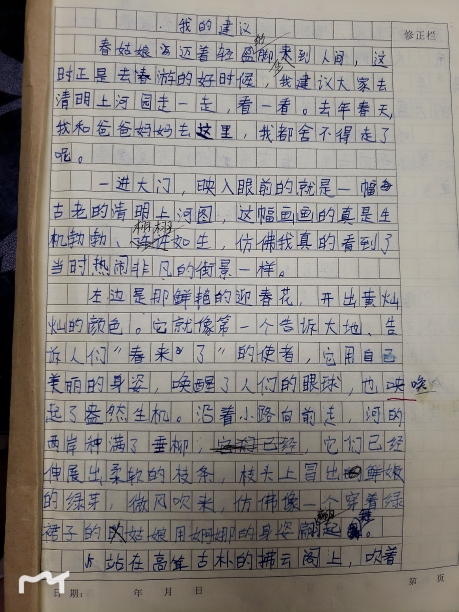 我的建议
修正栏
春姑娘迈着轻盈的脚步来到人间，这
时正是去春游的好时候，我建议大家去
清明上河园走一走，看一看。去年春天，
我和爸爸妈妈去这里，我都舍不得走了
呢。
一进大门，映入眼前的就是一幅
古老的清明上河图，这幅画画的真是生
机勃勃、栩栩如生，仿佛我真的看到了
当时热闹非凡的街景一样。
左边是那鲜艳的迎春花，开出黄灿
灿的颜色。它就像第一个告诉大地、告
诉人们“春来了”的使者，它用自己
美丽的身姿，唤醒了人们的眼球，也唤
起了盎然生机。沿着小路向前走，河的
两岸种满了垂柳，它们已经
伸展出柔软的枝条，枝头上冒出鲜嫩
的绿芽，微风吹来，仿佛像一个穿着绿
裙子的姑娘用婀娜的身姿翩翩起舞。
站在高耸古朴的拂云阁上，吹着
日期： 年 月 日
第 页